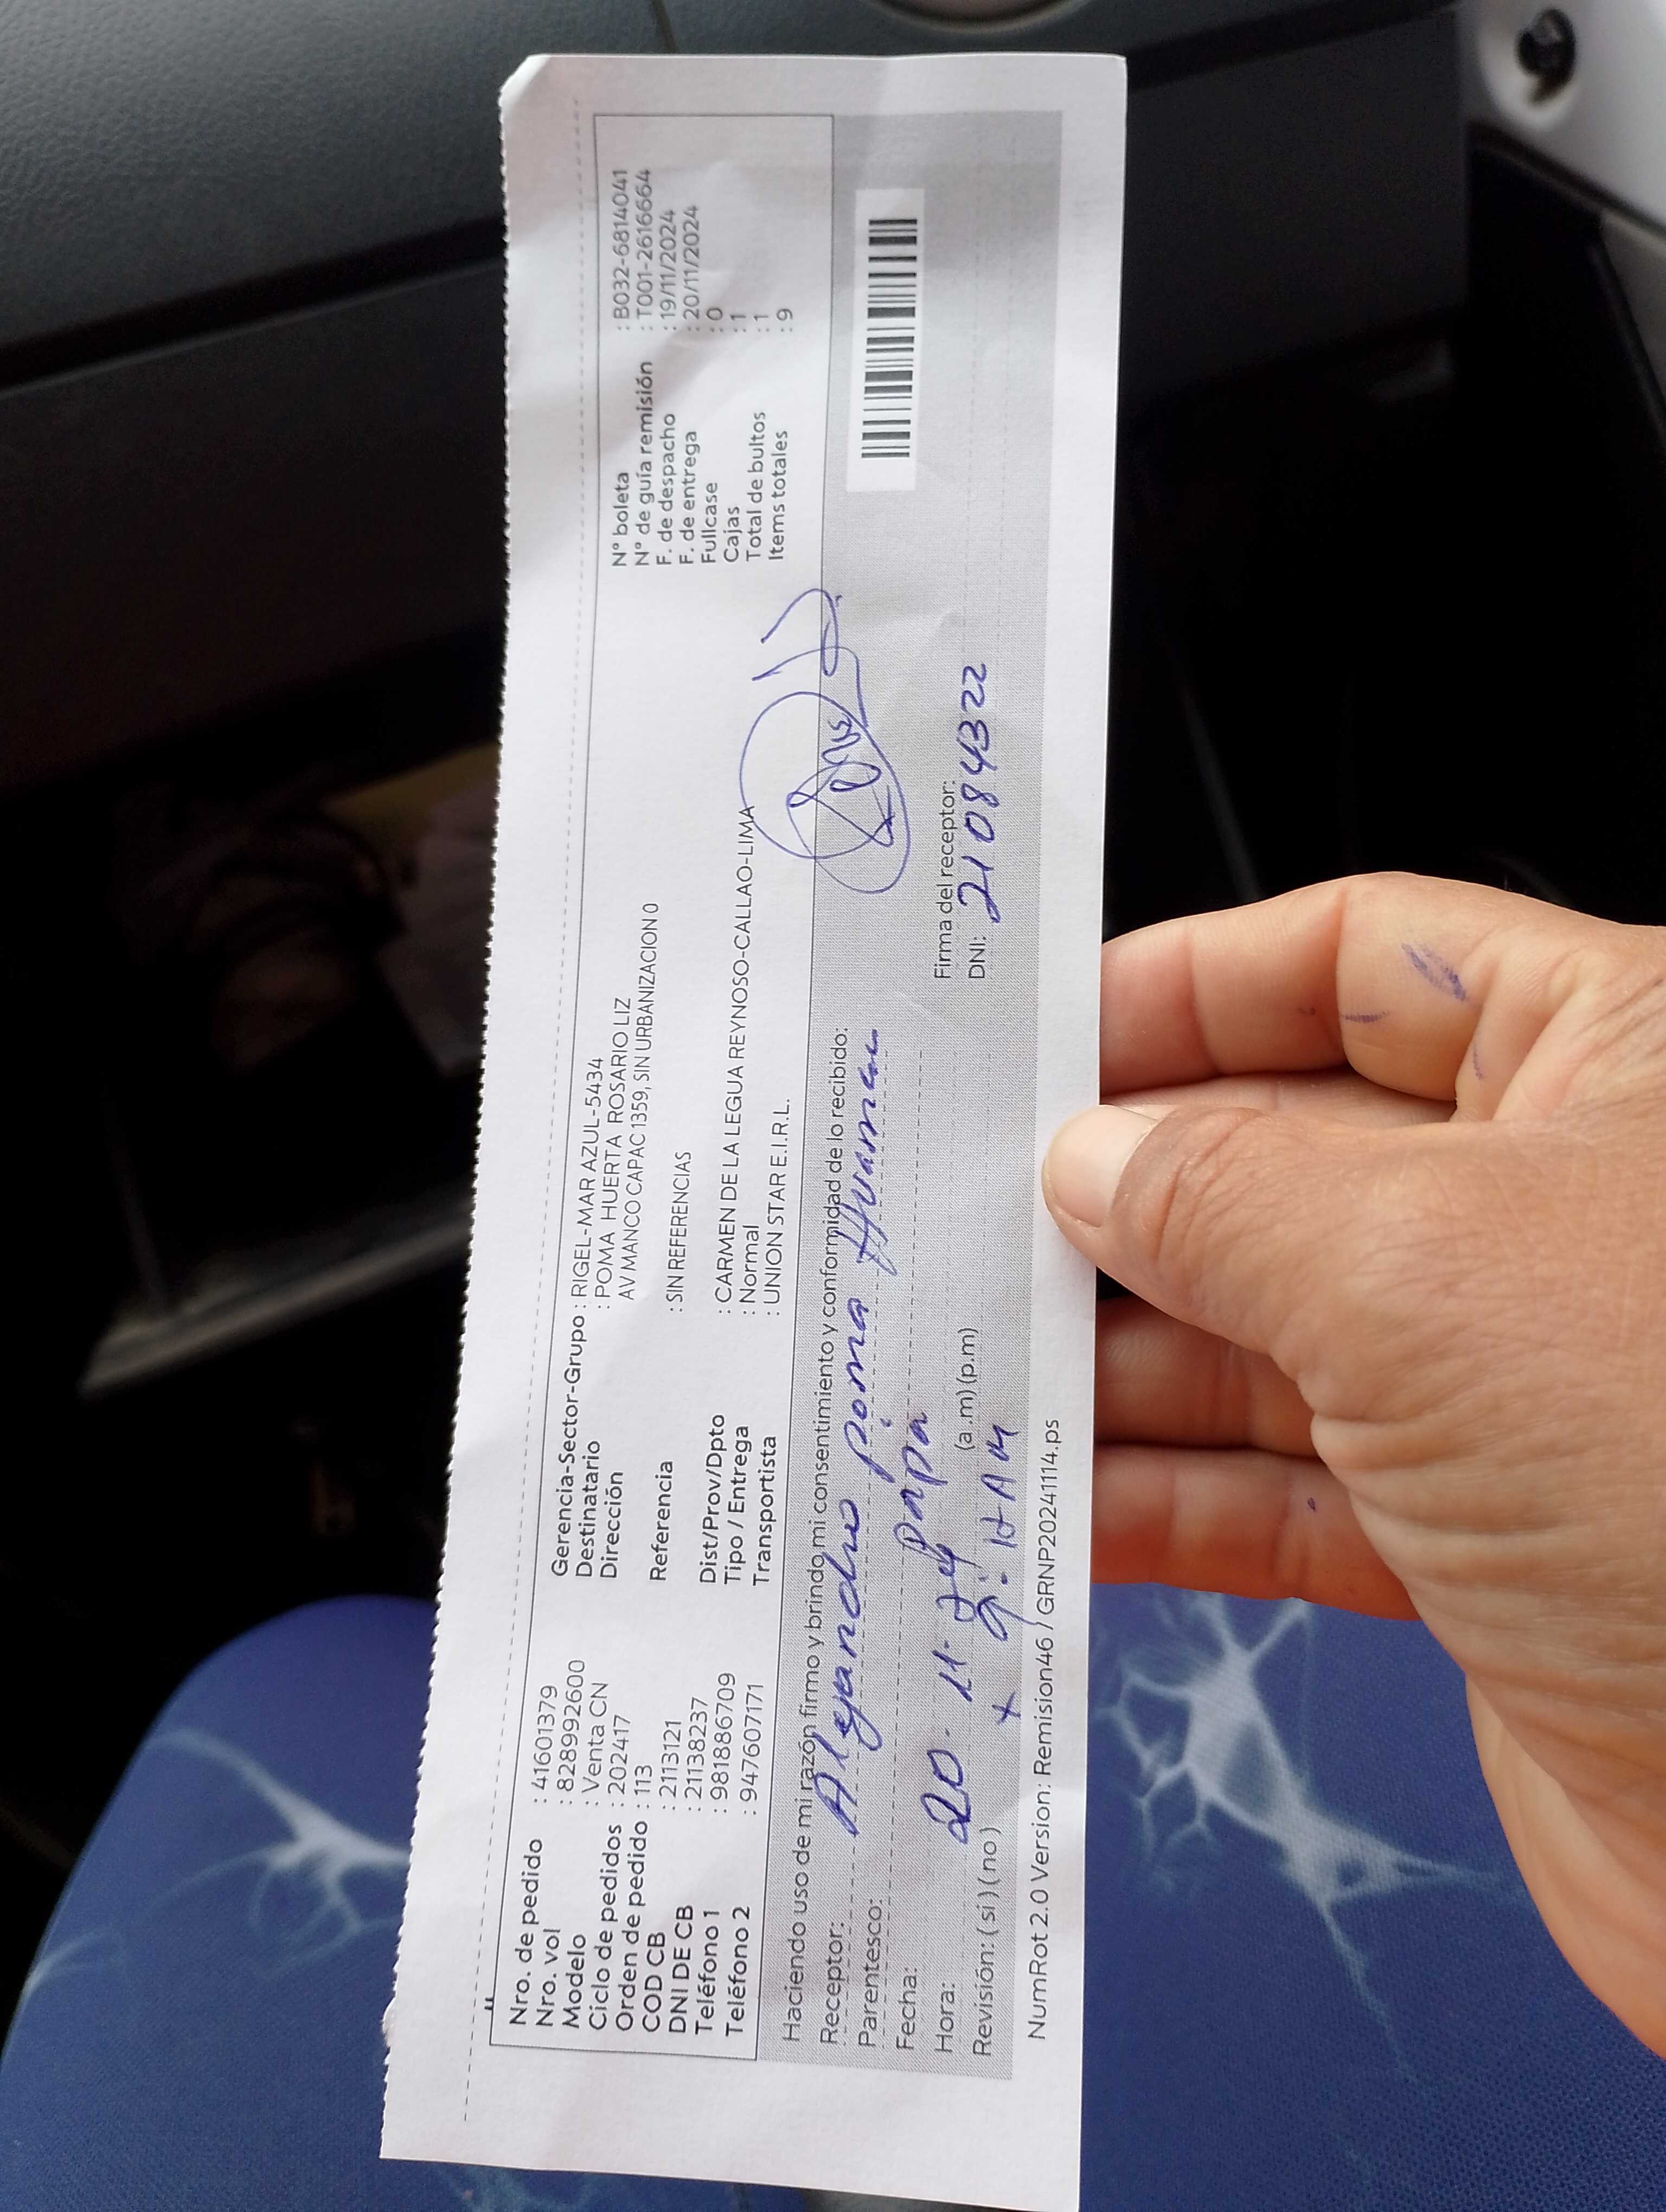 Nro. de pedido : 41601379
Nro. vol : 828992600
Modelo : Venta CN
Ciclo de pedidos : 202417
Orden de pedido : 113
COD CB : 2113121
DNI DE CB : 21138237
Teléfono 1 : 981886709
Teléfono 2 : 947607171
Gerencia-Sector-Grupo : RIGEL-MAR AZUL-5434
Destinatario : POMA HUERTA ROSARIO LIZ
Dirección AV MANCO CAPAC 1359, SIN URBANIZACION 0
Referencia : SIN REFERENCIAS
Dist/Prov/Dpto : CARMEN DE LA LEGUA REYNOSO-CALLAO-LIMA
Tipo / Entrega : Normal
Transportista : UNION STAR E.I.R.L.
N° boleta : B032-6814041
N° de guía remisión : T001-2616664
F. de despacho : 19/11/2024
F. de entrega : 20/11/2024
Fullcase : 0
Cajas : 1
Total de bultos : 1
Items totales : 9
Haciendo uso de mi razón firmo y brindo mi consentimiento y conformidad de lo recibido:
Receptor: Alejandro poma
Parentesco: papa
Fecha: 20. 11.
Hora: (a .m) (p.m)
Revisión: ( si ) ( no )
Firma del receptor:
DNI: 21084322
NumRot 2.0 Version: Remision46 / GRNP20241114.ps